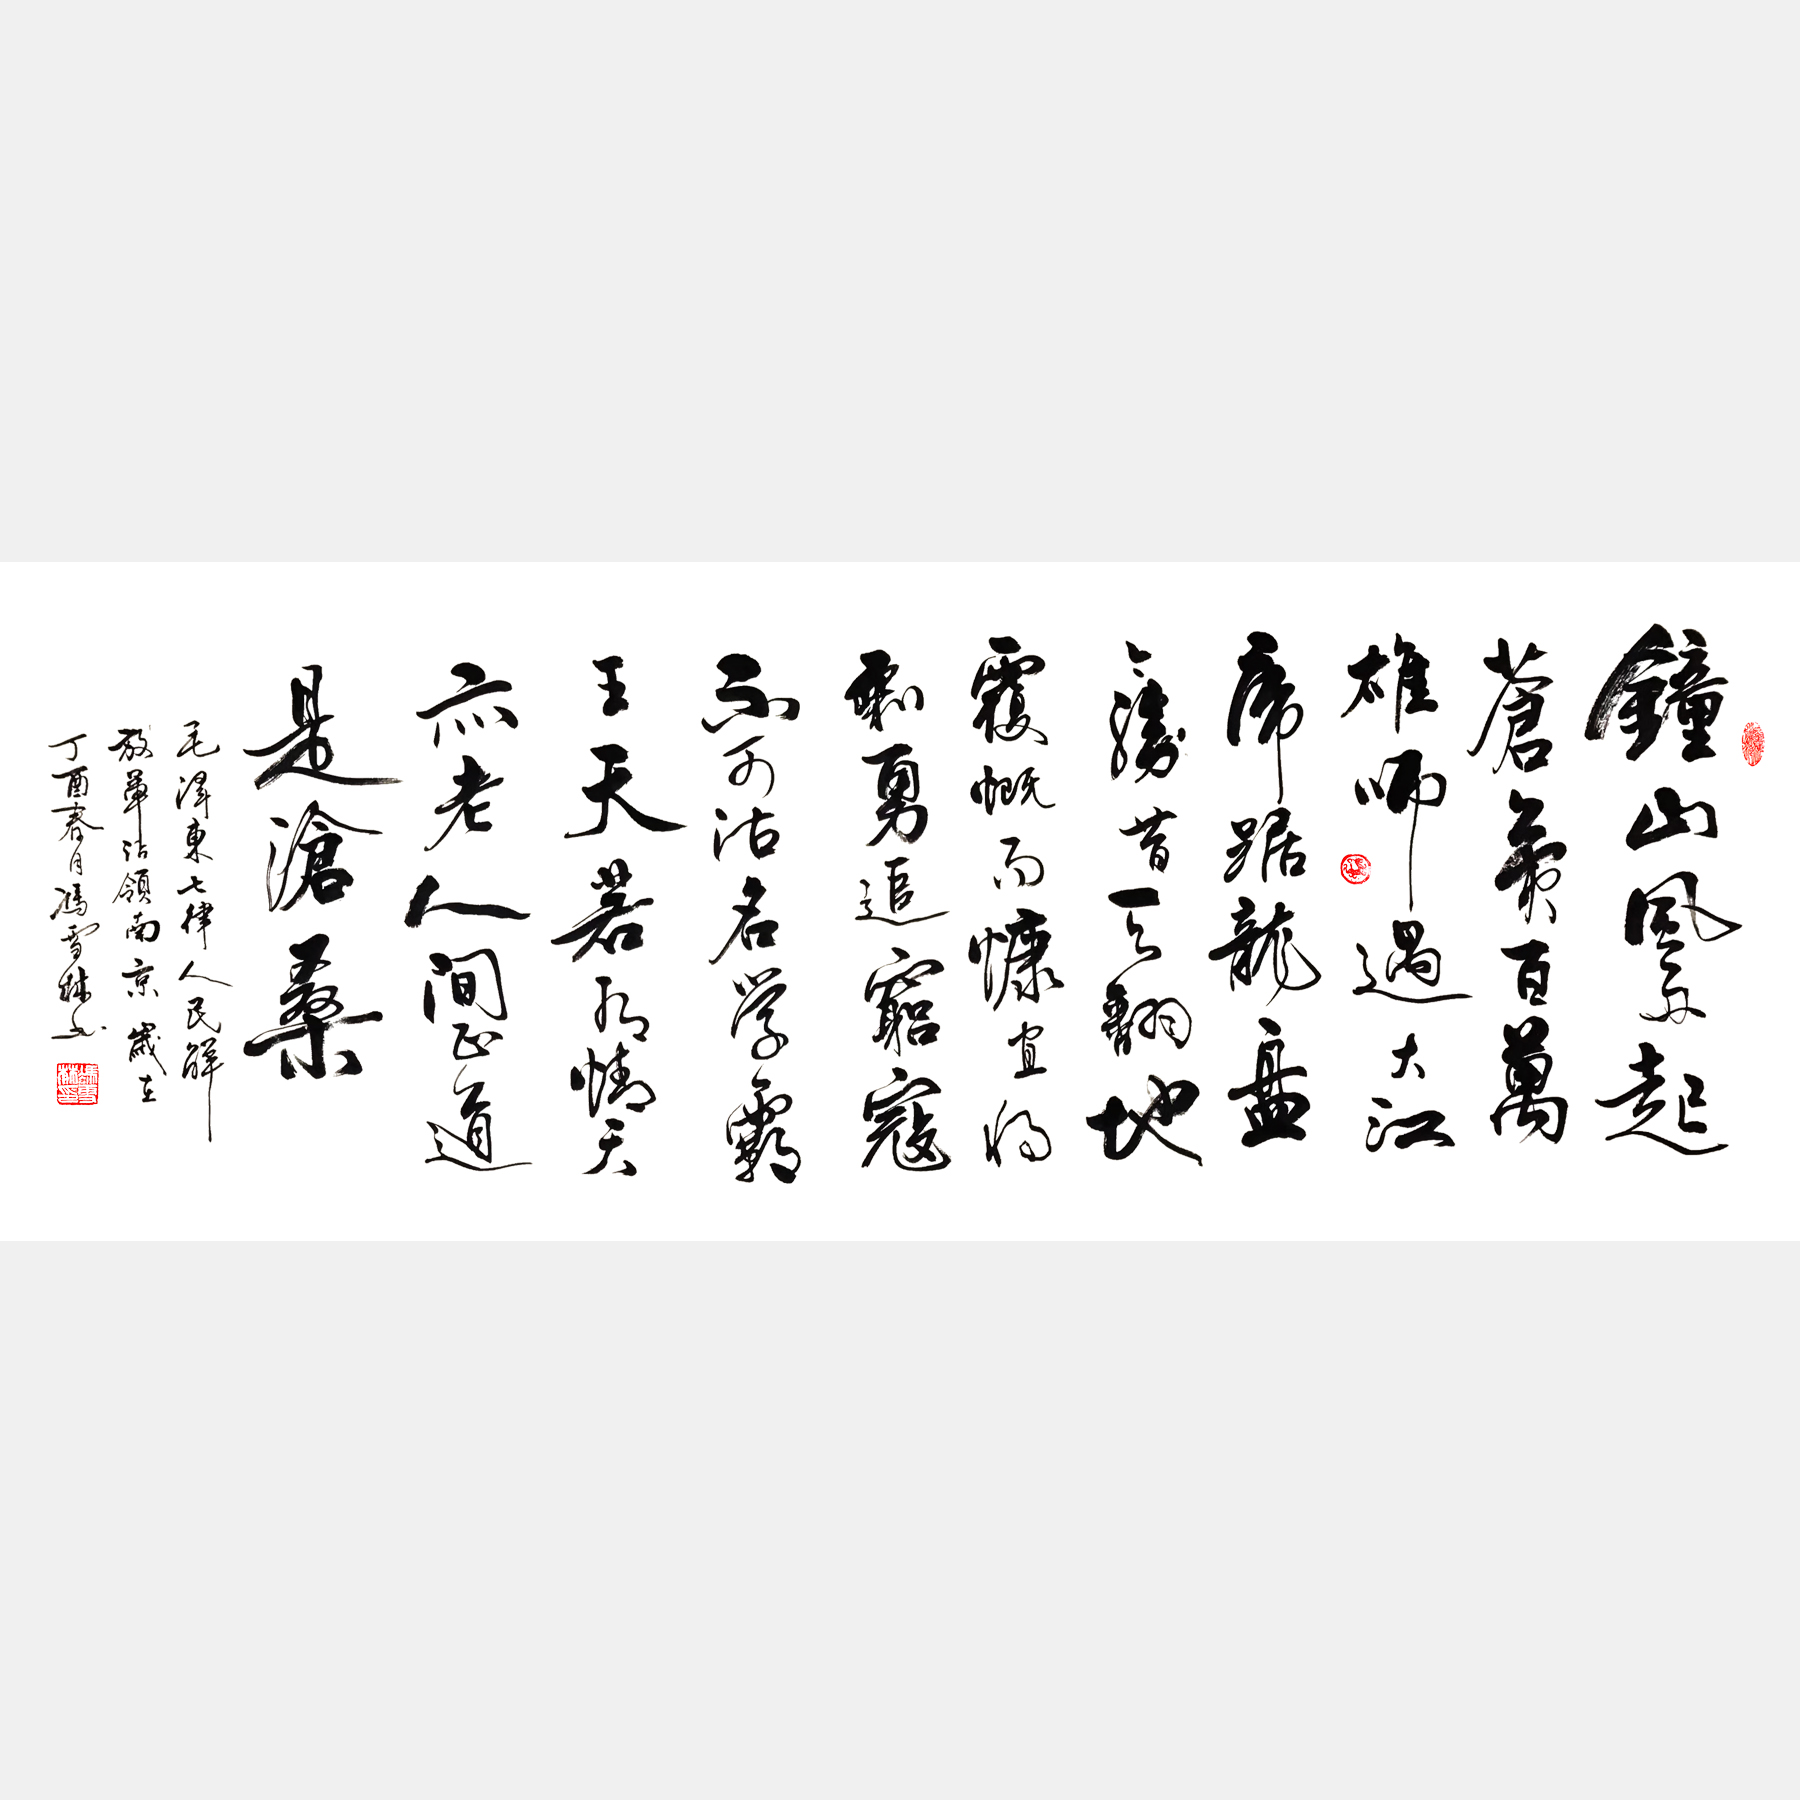 鐘山風雨起
蒼黃百萬
雄师過大江
虎踞龍盘
今勝昔天翻地
覆慨而慷宜将
剩勇追窮寇
不可沽名学霸
王天若有情天
亦老人間正道
是滄桑
毛澤東七律人民解
放軍佔領南京 歲在
丁酉春月馮雪林书
馮雪林印